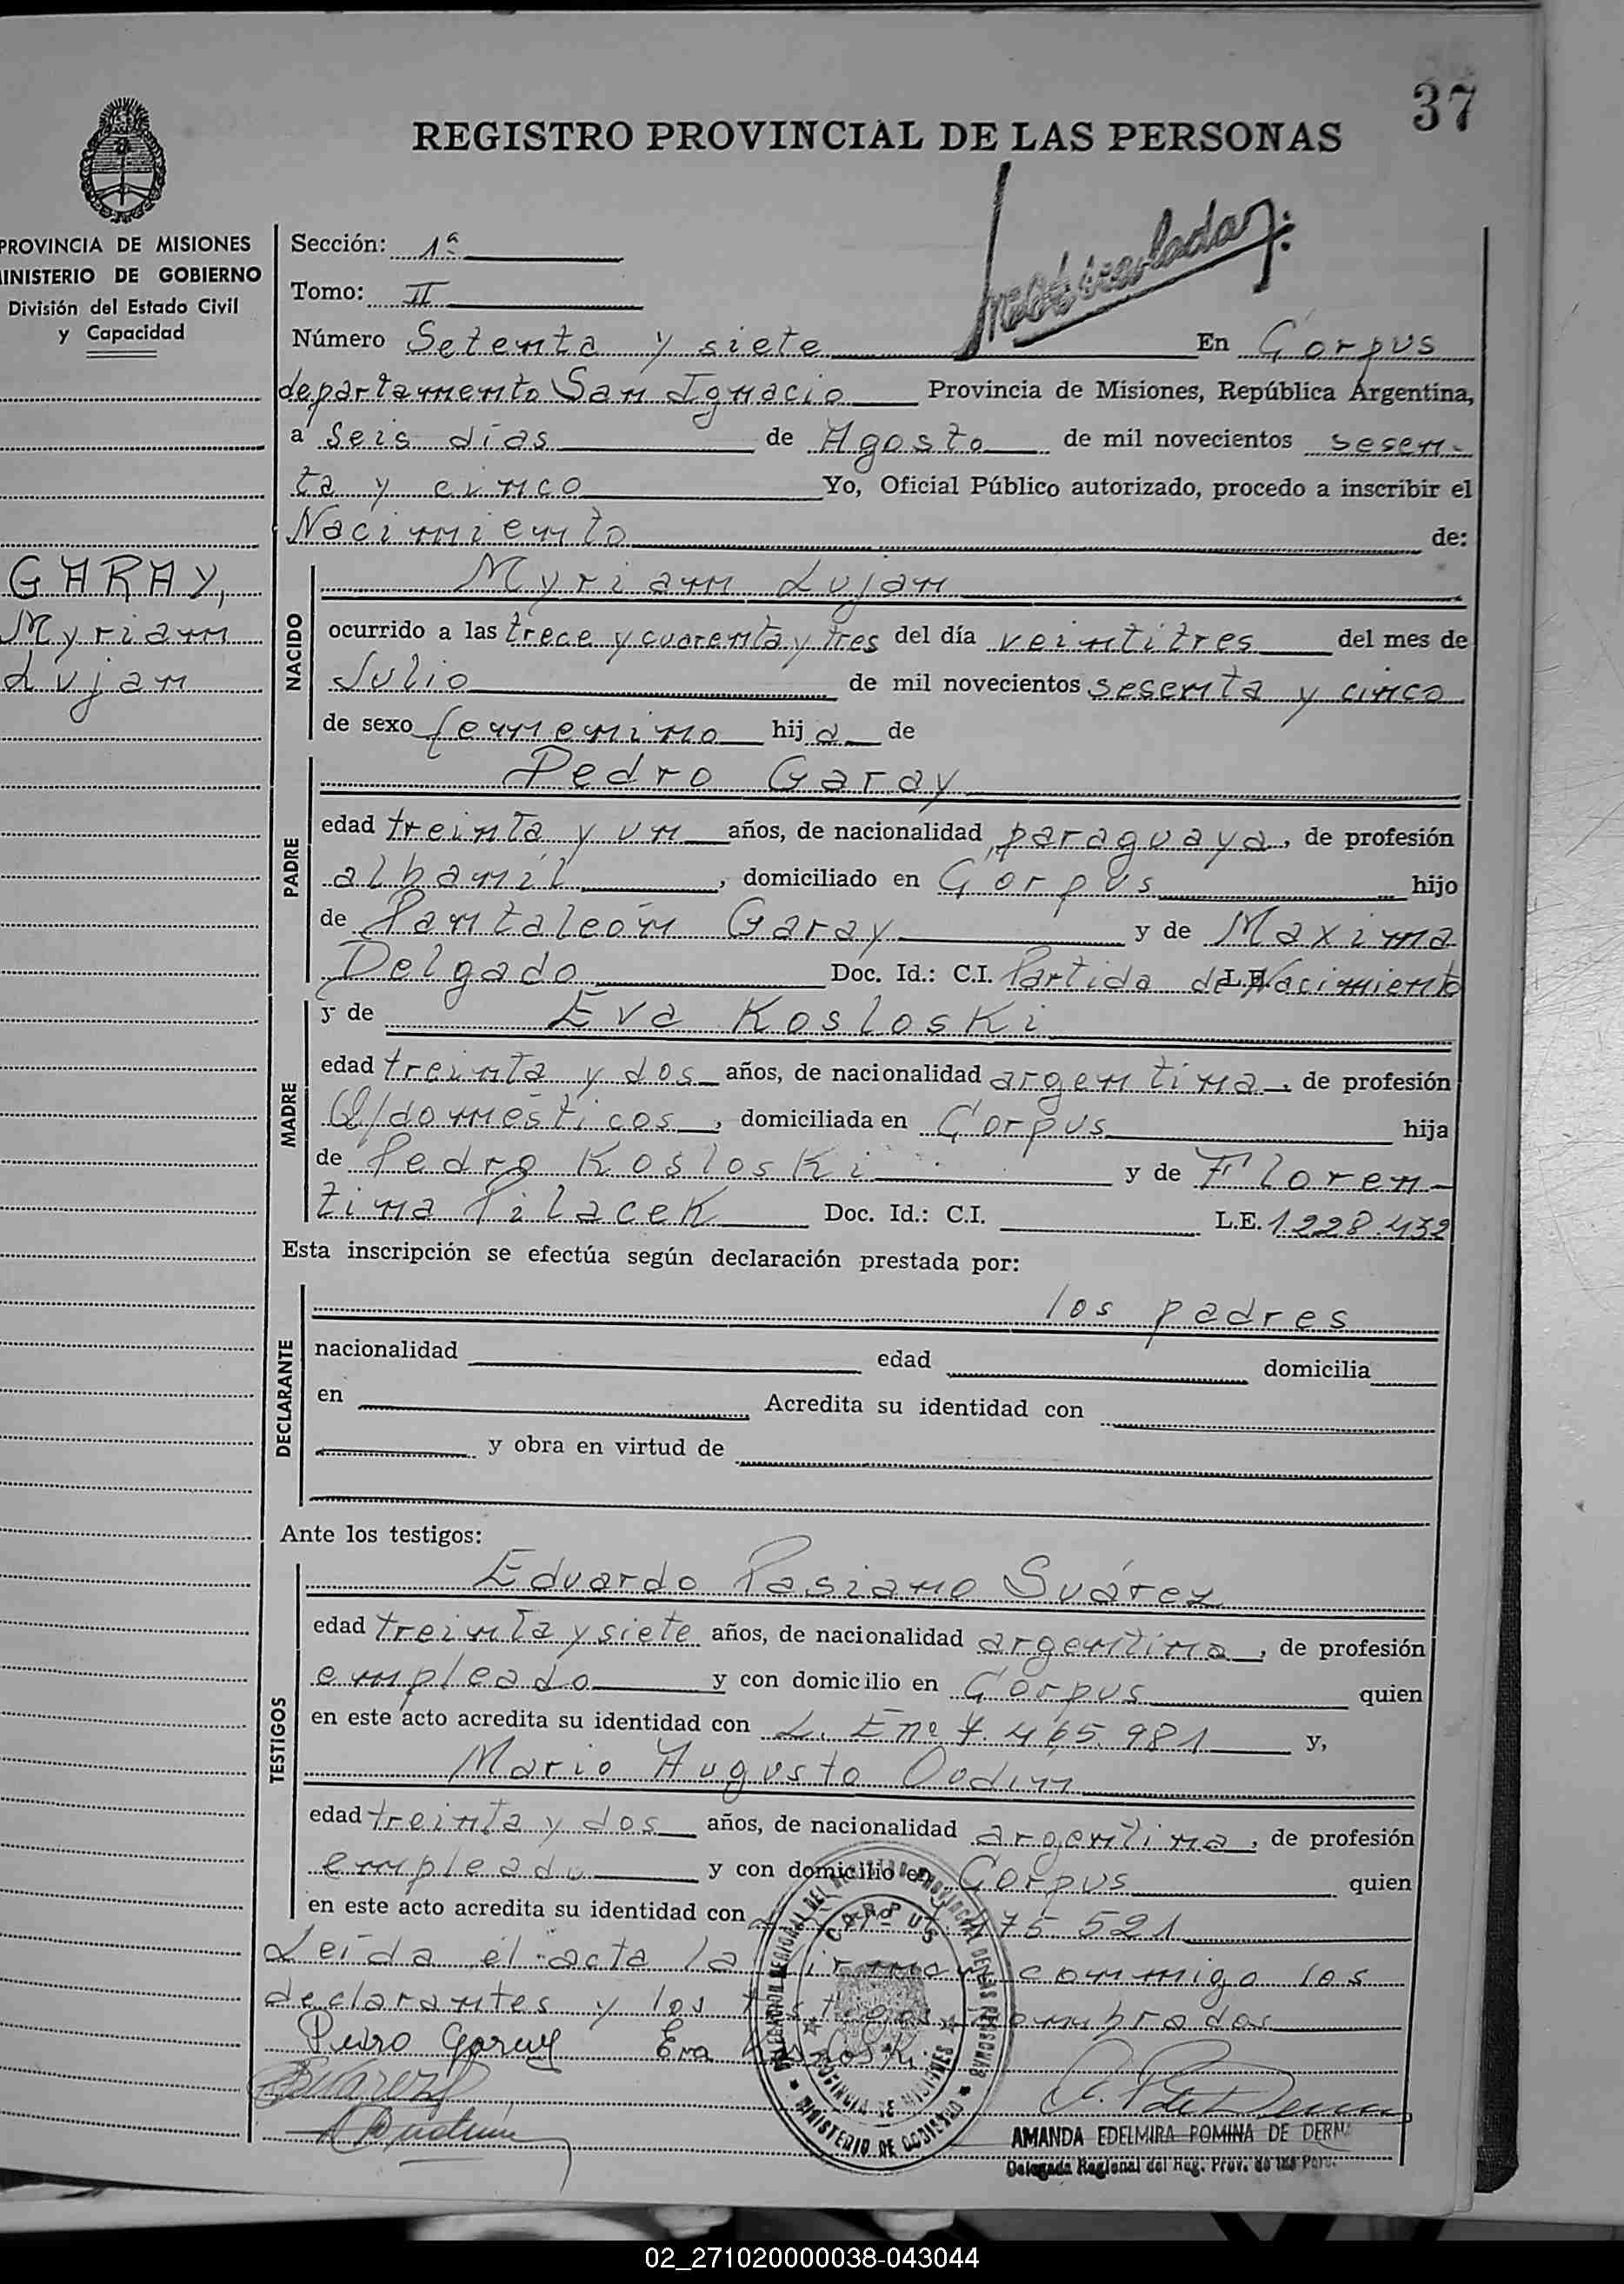 37
REGISTRO PROVINCIAL DE LAS PERSONAS
PROVINCIA DE MISIONES
MINISTERIO DE GOBIERNO
División del Estado Civil
y Capacidad
GARAY,
Myriam
Lujan
Sección: 1ª
Tomo: II
Número Setenta y siete En Corpus
departamento San Ignacio Provincia de Misiones, República Argentina,
a seis días de Agosto de mil novecientos sesen-
ta y cinco Yo, Oficial Público autorizado, procedo a inscribir el
Nacimiento de:
NACIDO
Myriam Lujan
ocurrido a las trece y cuarenta y tres del día veintitres del mes de
Julio de mil novecientos sesenta y cinco
de sexo femenino hija de
PADRE
Pedro Garay
edad treinta y un años, de nacionalidad paraguaya, de profesión
albañil, domiciliado en Corpus hijo
de Pantaleón Garay y de Maxima
Delgado Doc. Id.: C.I. Partida de Nacimiento L.E.
MADRE
y de Eva Kosloski
edad treinta y dos años, de nacionalidad argentina, de profesión
Q/domésticos, domiciliada en Corpus hija
de Pedro Kosloski y de Floren-
tina Pilacek Doc. Id.: C.I. L.E. 1.228.432
Esta inscripción se efectúa según declaración prestada por:
DECLARANTE
los padres
nacionalidad edad domicilia
en Acredita su identidad con
y obra en virtud de
Ante los testigos:
TESTIGOS
Eduardo Pasiano Suárez
edad treinta y siete años, de nacionalidad argentina, de profesión
empleado y con domicilio en Corpus quien
en este acto acredita su identidad con L. E nº 7.465.981 y,
Mario Augusto Oodin
edad treinta y dos años, de nacionalidad argentina, de profesión
empleado y con domicilio en Corpus quien
en este acto acredita su identidad con 475.521
Leída el acta la firman conmigo los
declarantes y los testigos nombrados
Pedro Garay Eva Kosloski
DELEGACION REGIONAL DEL REGISTRO PROVINCIAL DE LAS PERSONAS
CORPUS
PROVINCIA DE MISIONES
MINISTERIO DE GOBIERNO
AMANDA EDELMIRA ROMINA DE DERNA
Delegada Regional del Reg. Prov. de las Pers.
02_271020000038-043044